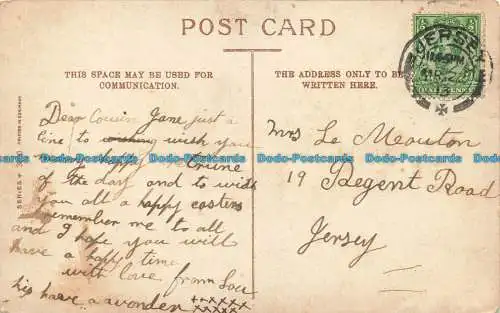 POST CARD
THIS SPACE MAY BE USED FOR
COMMUNICATION.
THE ADDRESS ONLY TO BE
WRITTEN HERE.
JERSEY
Dear Cousin Jane just a
line to wish you
many happy
of the day and to wish
you all a happy easter
remember me to all
and I hope you will
have a happy time
with love from Lou
his have a wonder ++xxxxx
xxxxx
Mrs Le Mouton
19 Regent Road
Jersey
SERIES
Dodo-Postcards Dodo-Postcards Dodo-Postcards Dodo-Postcards